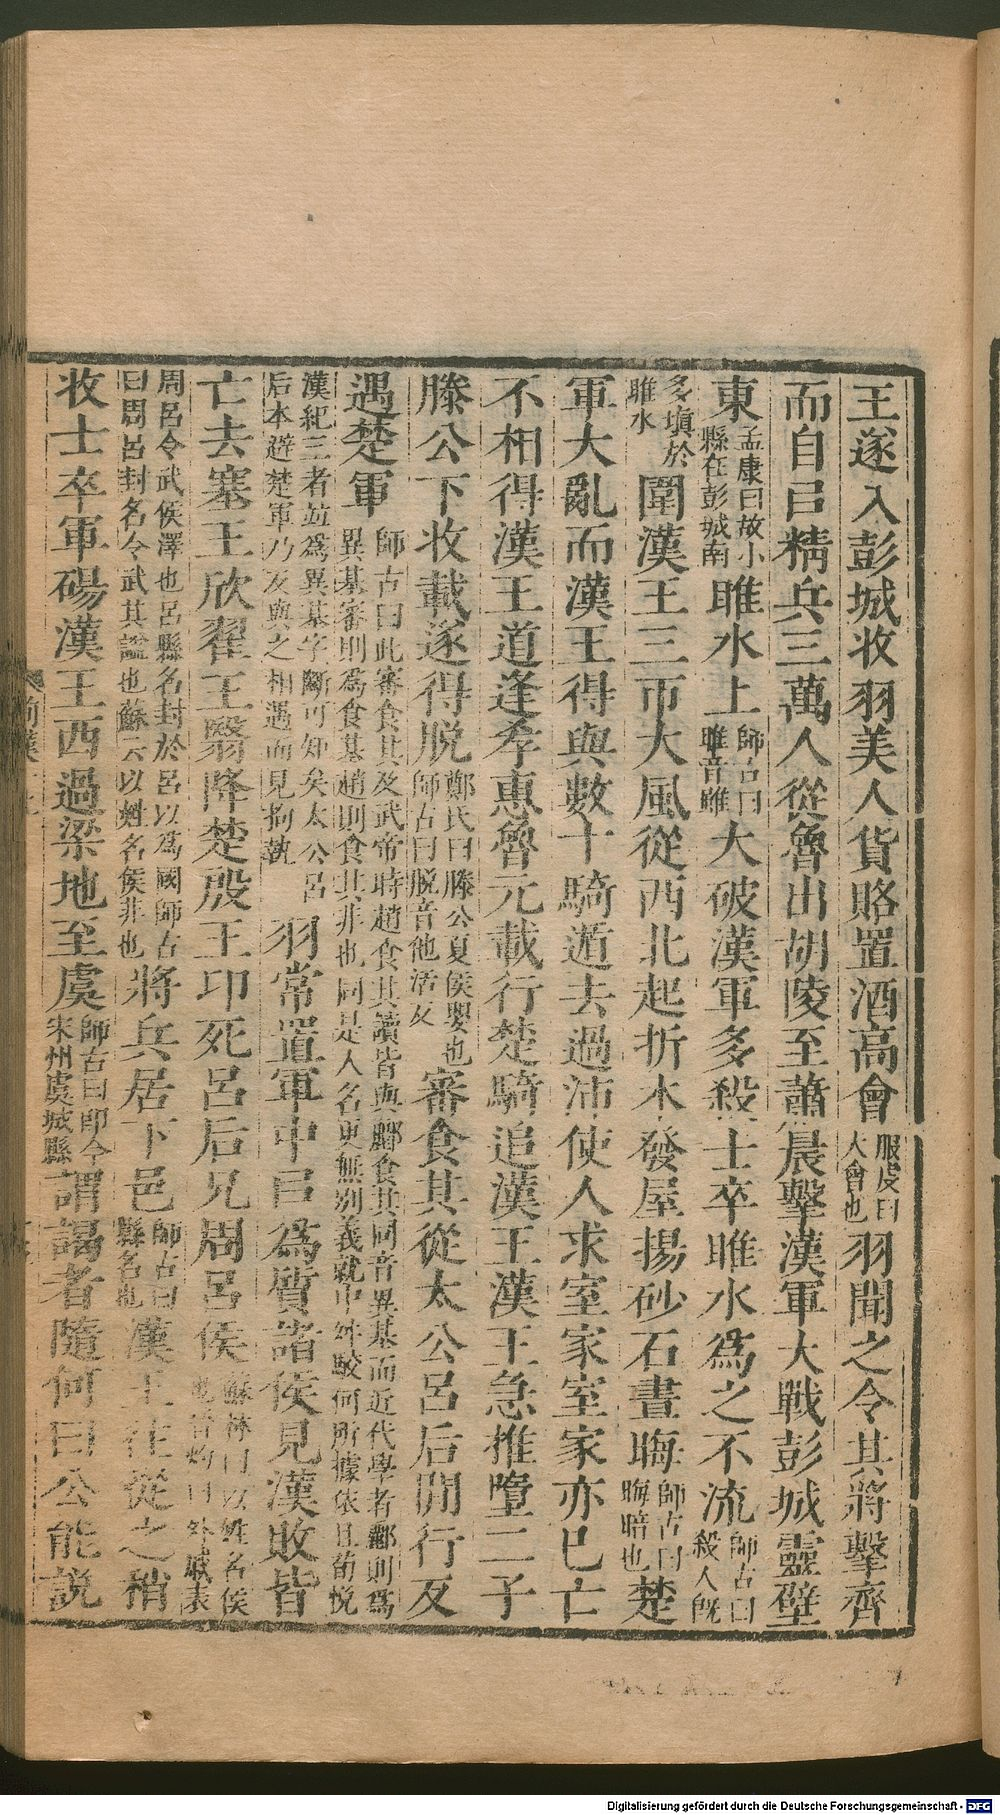 王遂入彭城收羽美人貨賂置酒高會服虔曰大會也羽聞之令其將擊齊
而自㠯精兵三萬人從魯出胡陵至蕭晨擊漢軍大戰彭城靈壁
東孟康曰故小縣在彭城南睢水上師古曰睢音雖大破漢軍多殺士卒睢水爲之不流師古曰殺人旣
多塡於睢水圍漢王三帀大風從西北起折木發屋揚砂石晝晦師古曰晦暗也楚
軍大亂而漢王得與數十騎遁去過沛使人求室家室家亦已亡
不相得漢王道逢孝惠魯元載行楚騎追漢王漢王急推墮二子
滕公下收載遂得脫鄭氏曰滕公夏侯嬰也師古曰脫音他活反審食其從太公呂后閒行反
遇楚軍師古曰此審食其及武帝時趙食其讀皆與酈食其同音異基而近代學者酈則爲異基審則爲食基趙則食其非也同是人名更無別義就中舛駮何所據依且荀悅
漢紀三者竝爲異基字斷可知矣太公呂后本避楚軍乃反與之相遇而見拘執羽常置軍中㠯爲質諸侯見漢敗皆
亡去塞王欣翟王翳降楚殷王卬死呂后兄周呂侯蘇林曰以姓名侯也晉灼曰外戚表
周呂令武侯澤也呂縣名封於呂以爲國師古曰周呂封名令武其諡也蘇云以姓名侯非也將兵居下邑師古曰縣名也漢王往從之稍
收士卒軍碭漢王西過梁地至虞師古曰卽今宋州虞城縣謂謁者隨何曰公能說
前漢
Digitalisierung gefördert durch die Deutsche Forschungsgemeinschaft - DFG